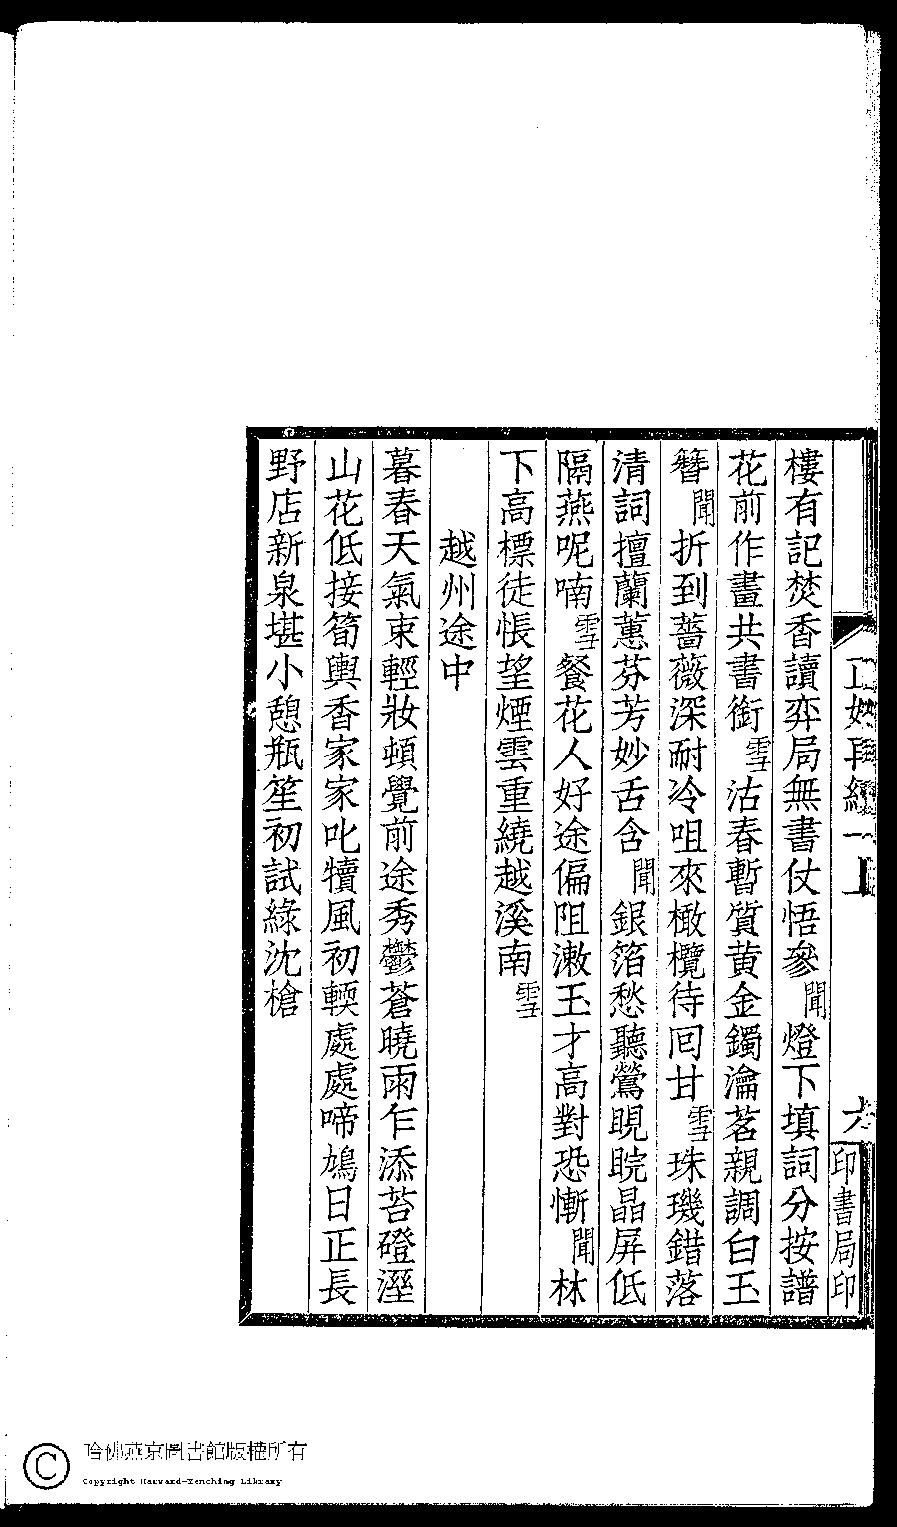 樓有記焚香讀弈局無書仗悟參聞燈下填詞分按譜
花前作畫共書銜雪沽春暫質黃金鐲瀹茗親調白玉
簪聞折到薔薇深耐冷咀來橄欖待回甘雪珠璣錯落
清詞擅蘭蕙芬芳妙舌含聞銀箔愁聽鶯睍睆晶屏低
隔燕呢喃雪餐花人好途偏阻漱玉才高對恐慚聞林
下高標徒悵望煙雲重繞越溪南雪
越州途中
暮春天氣束輕妝頓覺前途秀鬱蒼曉雨乍添苔磴溼
山花低接筍輿香家家叱犢風初輭處處啼鳩日正長
野店新泉堪小憩瓶笙初試綠沈槍
六
印書局印
哈佛燕京圖書館版權所有
Copyright Harvard-Yenching Library